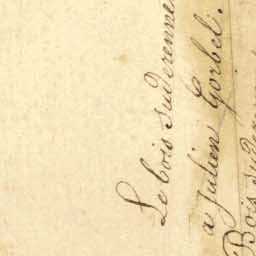 Le bois suderenne
a Julien Gorbel.
Bois sude